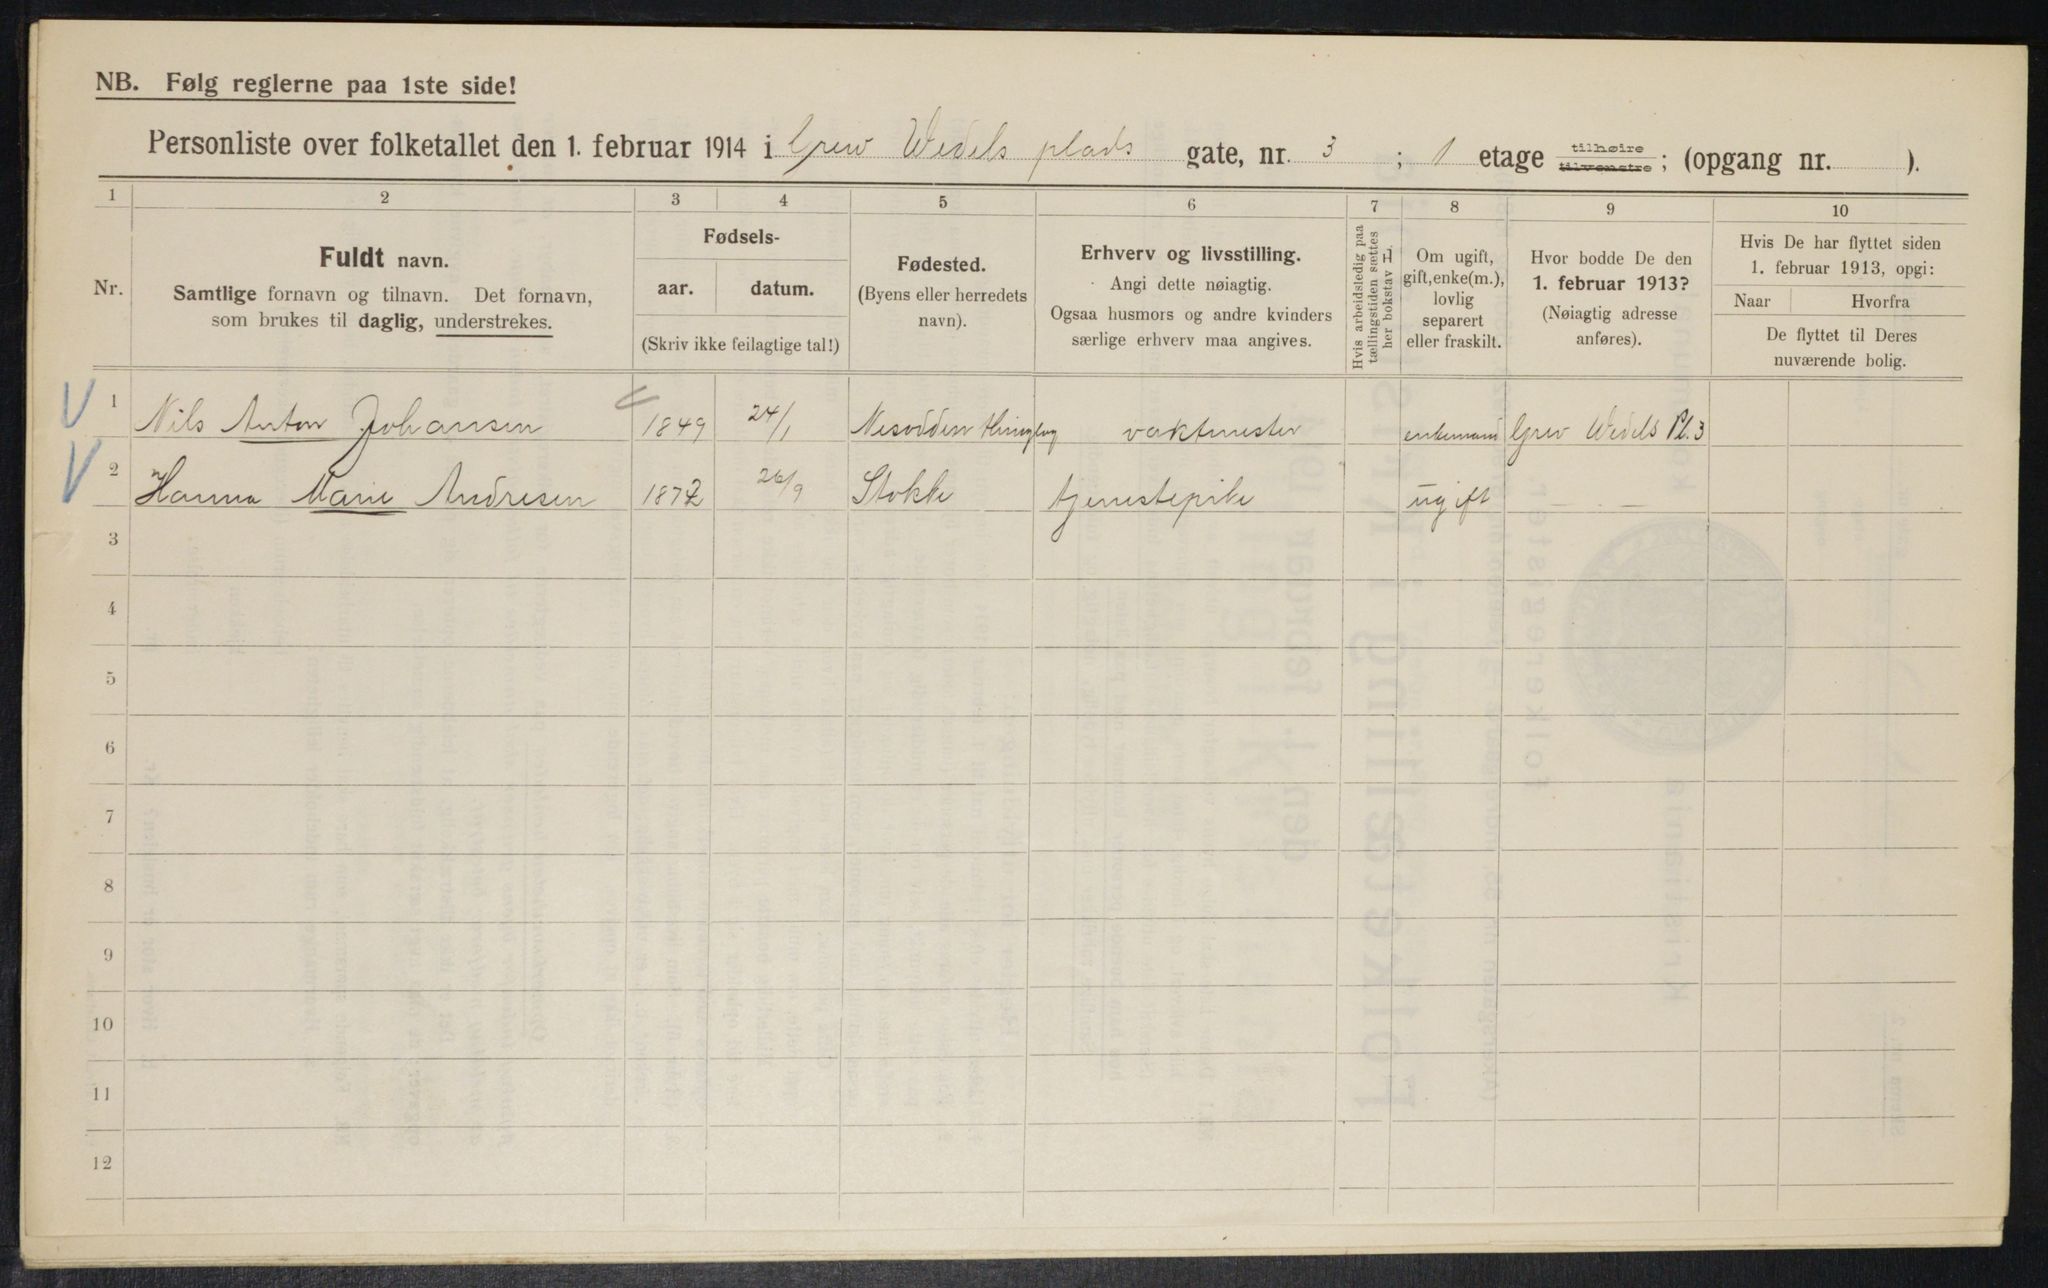 NB. Følg reglerne paa 1ste side!
Personliste over folketallet den 1. februar 1914 i Grev Wedels plads gate, nr. 3 ; 1 etage tilhøire tilvenstre ; (opgang nr. ).
1 2 3 4 5 6 7 8 9 10
Nr.
Fuldt navn.
Samtlige fornavn og tilnavn. Det fornavn,
som brukes til daglig, understrekes.
Fødsels-
aar. datum.
(Skriv ikke feilagtige tal!)
Fødested.
(Byens eller herredets
navn).
Erhverv og livsstilling.
Angi dette nøiagtig.
Ogsaa husmors og andre kvinders
særlige erhverv maa angives.
Hvis arbeidsledig paa
tællingstiden sættes
her bokstav L.
Om ugift,
gift, enke(m.),
lovlig
separert
eller fraskilt.
Hvor bodde De den
1. februar 1913?
(Nøiagtig adresse
anføres).
Hvis De har flyttet siden
1. februar 1913, opgi:
Naar Hvorfra
De flyttet til Deres
nuværende bolig.
1 Nils Anton Johansen 1849 24/1 Nesodden thinglag vaktmester enkemand Grev Wedels Pl. 3
2 Hanna Marie Andresen 1872 26/9 Stokke tjenestepike ugift — " —
3
4
5
6
7
8
9
10
11
12